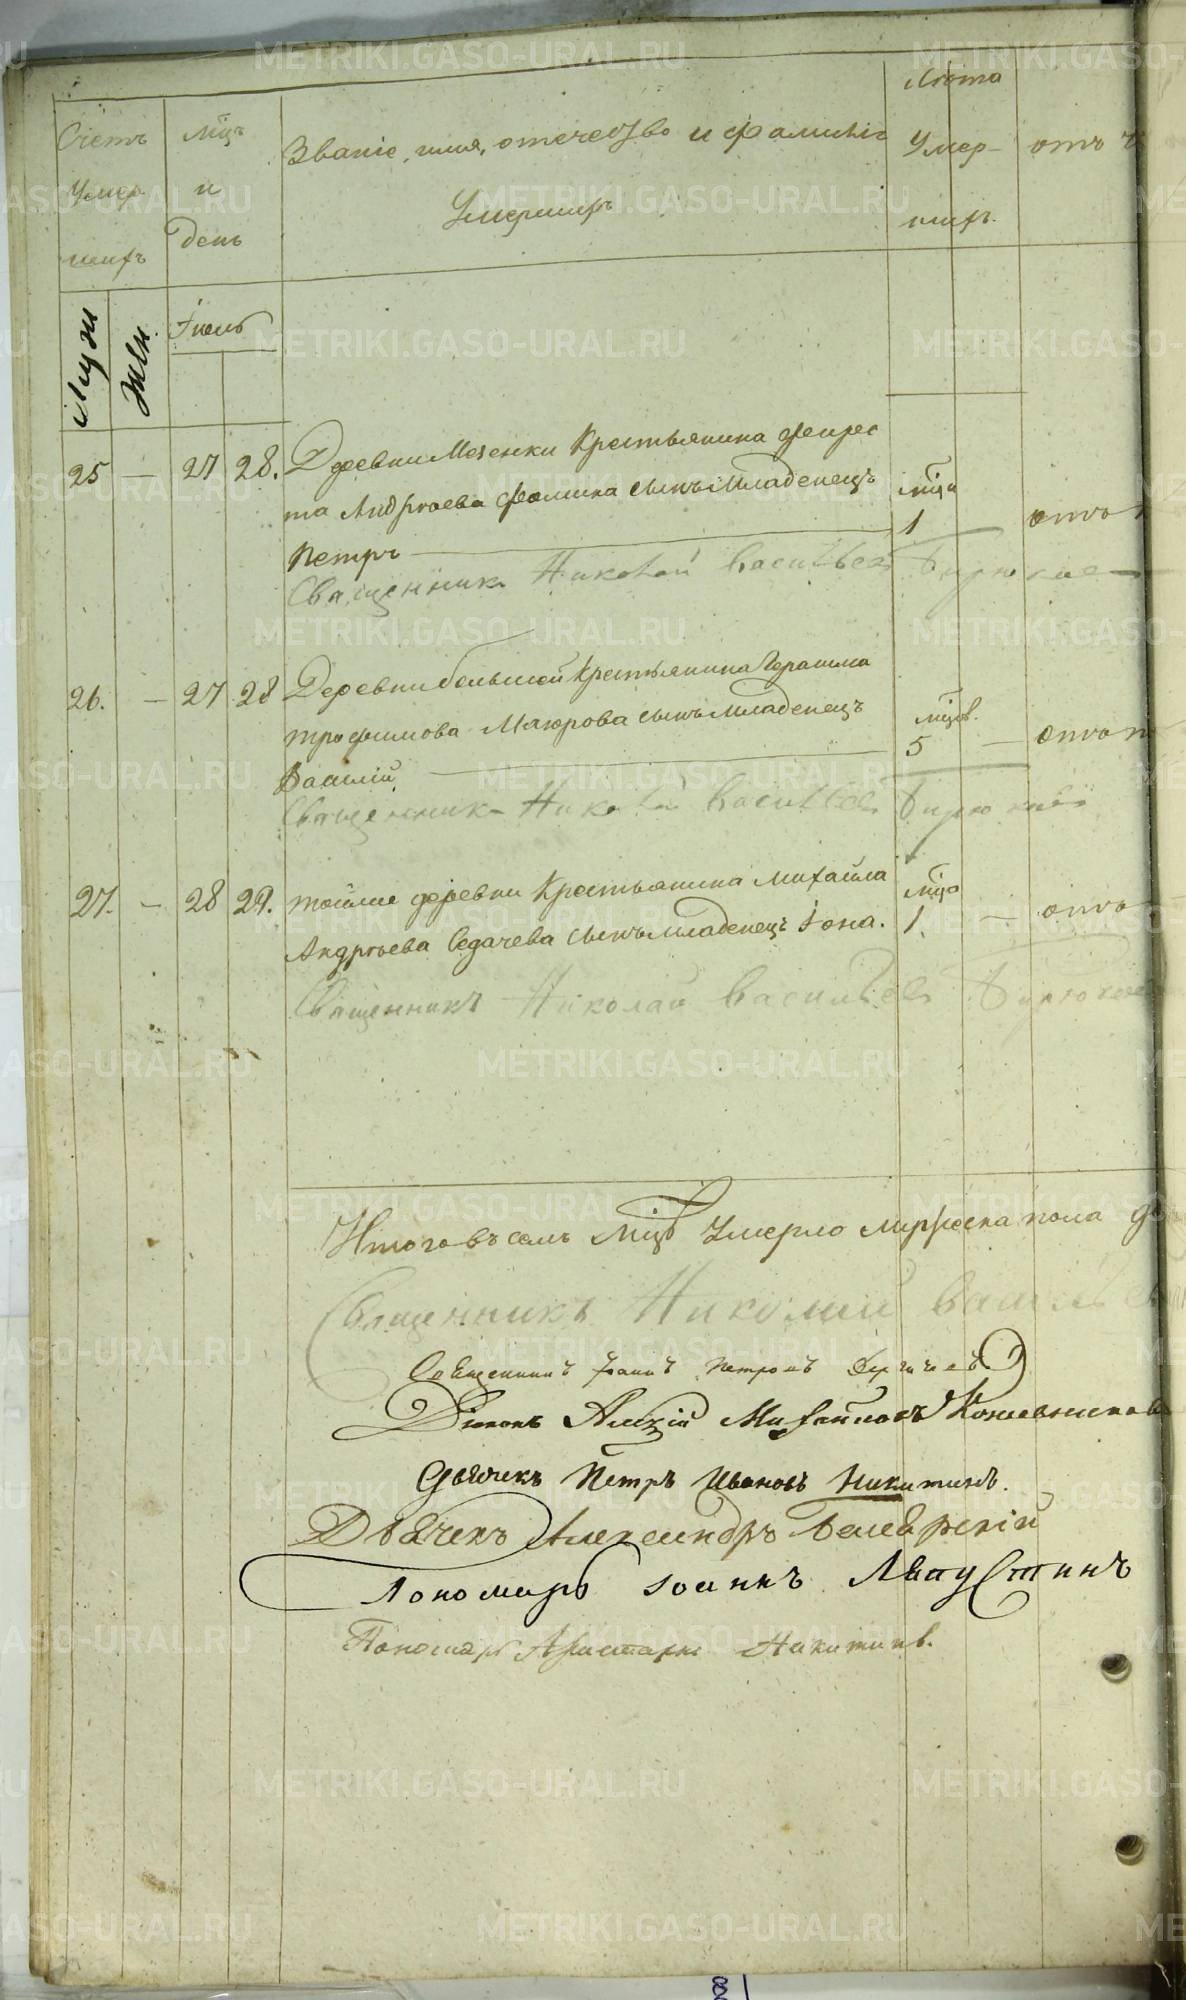 Счетъ умер шихъ
Мцъ и день
Званіе, имя, отечество и фамилія
Умершихъ
Лѣта Умер- шихъ.
отъ ч
Муж
Жен.
Іюль
25 — 27 28. Деревни Мезенки Крестьянина Феирс
та Андреева Фомина сынъ Младенецъ
мца 1 —
Петръ —
Священникъ Николай Васильевъ Бирюков
26. — 27 28 Деревни большой Крестьянина Герасима
Трофимова Маюрова сынъ Младенецъ
мцов. 5 —
Василій —
Священникъ Николай Васильевъ Бирюковъ
27. — 28 29. тойже деревни Крестьянина Михайла
мца 1. —
Андреева Седачева сынъ младенецъ Іона.
Священникъ Николай Васильевъ Бирюков
Итого въ семъ Мцѣ Умерло мужеска пола
Священникъ Николай Василье
Священникъ Іоаннъ Петровъ
Діаконъ Алексій Михайловъ Кожевников
Дьячекъ Петръ Ивановъ Никитинъ.
Дьячекъ Александръ Белоярскій
Пономарь Іоаннъ Августинъ
Пономарь Аристархъ Никитинъ.
METRIKI.GASO-URAL.RU